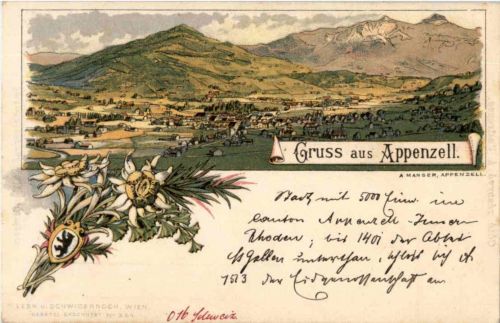 Gruss aus Appenzell.
A MANGER, APPENZELL.
Stadt mit 5000 Einw. im
Canton Appenzell-Inner
Rhoden; bis 1401 der Abtei
St Gallen unterthan, schloss sich
1513 der Eidgenossenschaft an
LESK U. SCHWIDERNOCH, WIEN.
GESETZL. GESCHÜTZT No
Schweiz